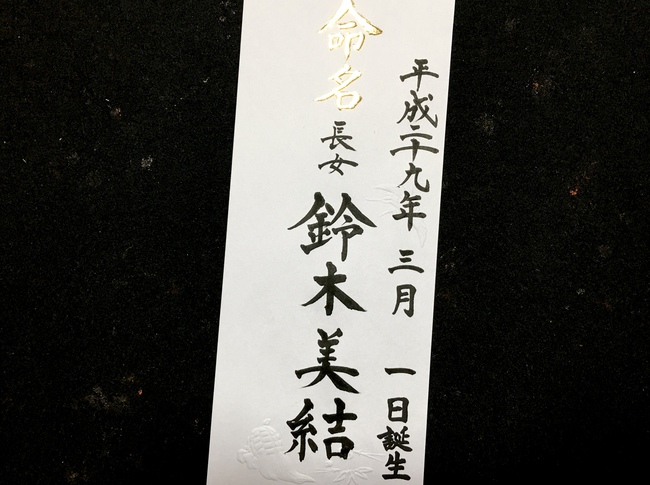 平成二十九年 三月 一日誕生
命名
長女
鈴木美結